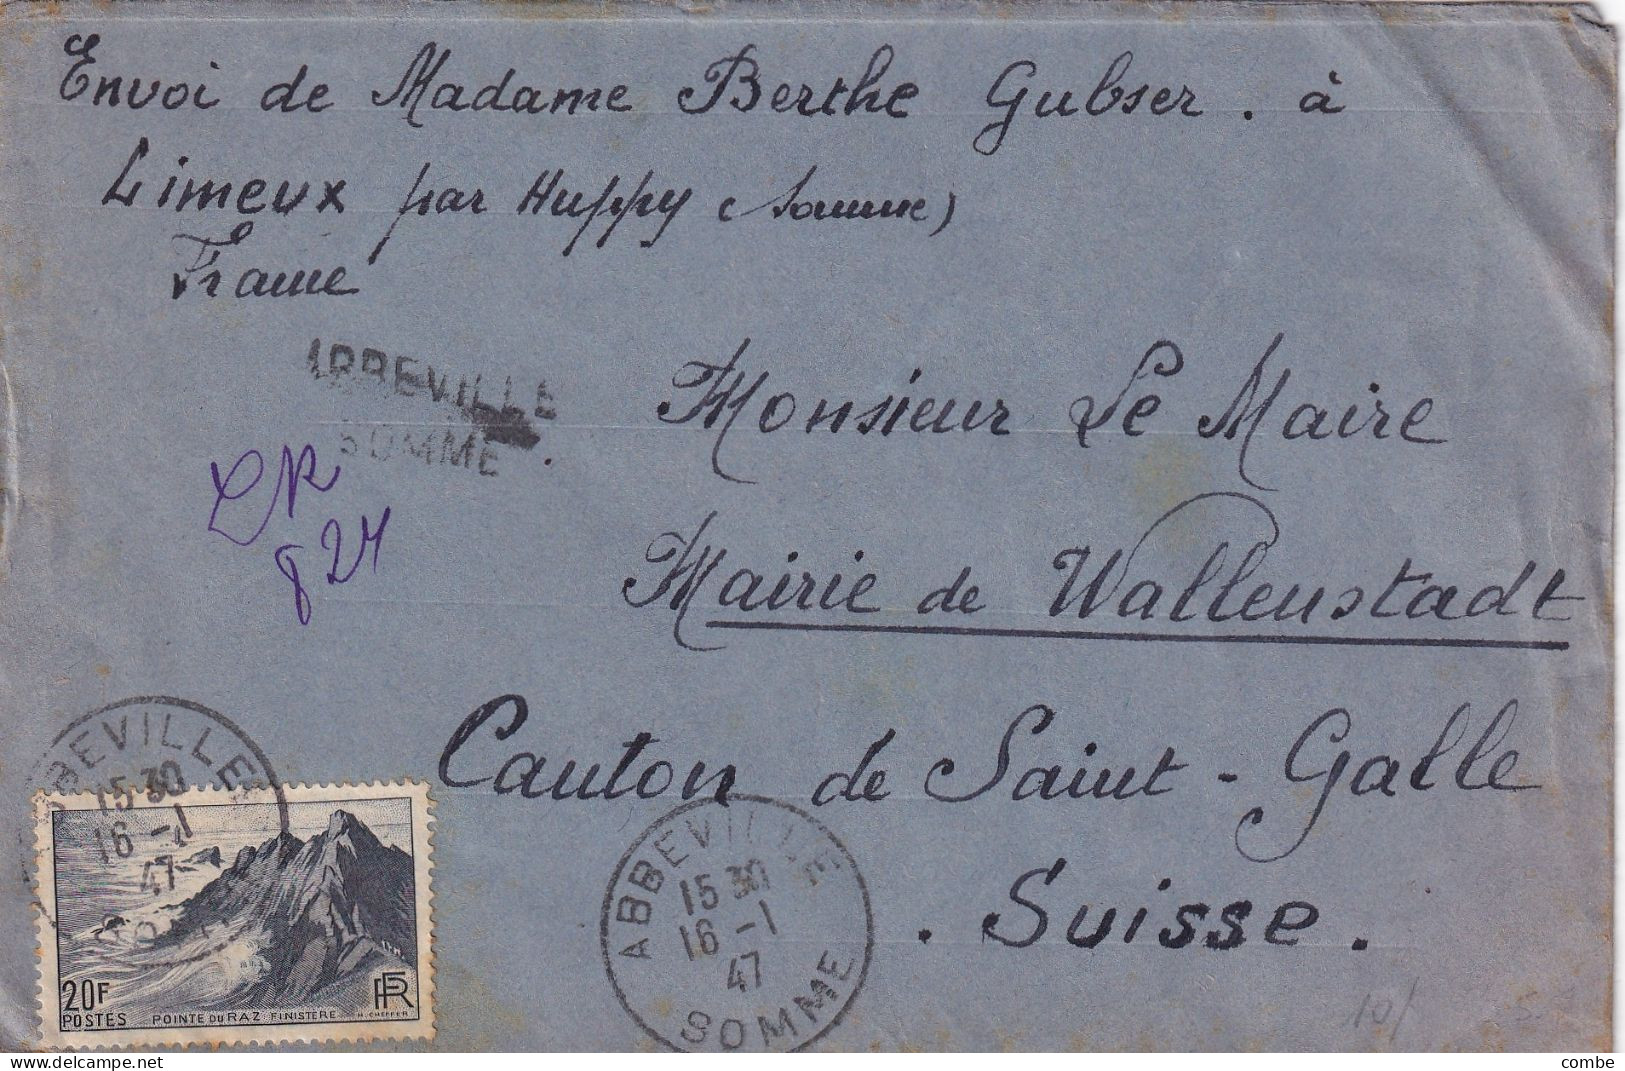 Envoi de Madame Berthe Gubser . à
Limeux par Huppy (Somme)
France
ABBEVILLE
SOMME
Monsieur Le Maire
824
Mairie de Wallenstadt
Canton de Saint-Galle
. Suisse .
ABBEVILLE
15 30
16 -1
47
20F
POSTES POINTE DU RAZ FINISTERE H. CHEFFER
RF
ABBEVILLE
15 30
16 -1
47
SOMME
10/
combe